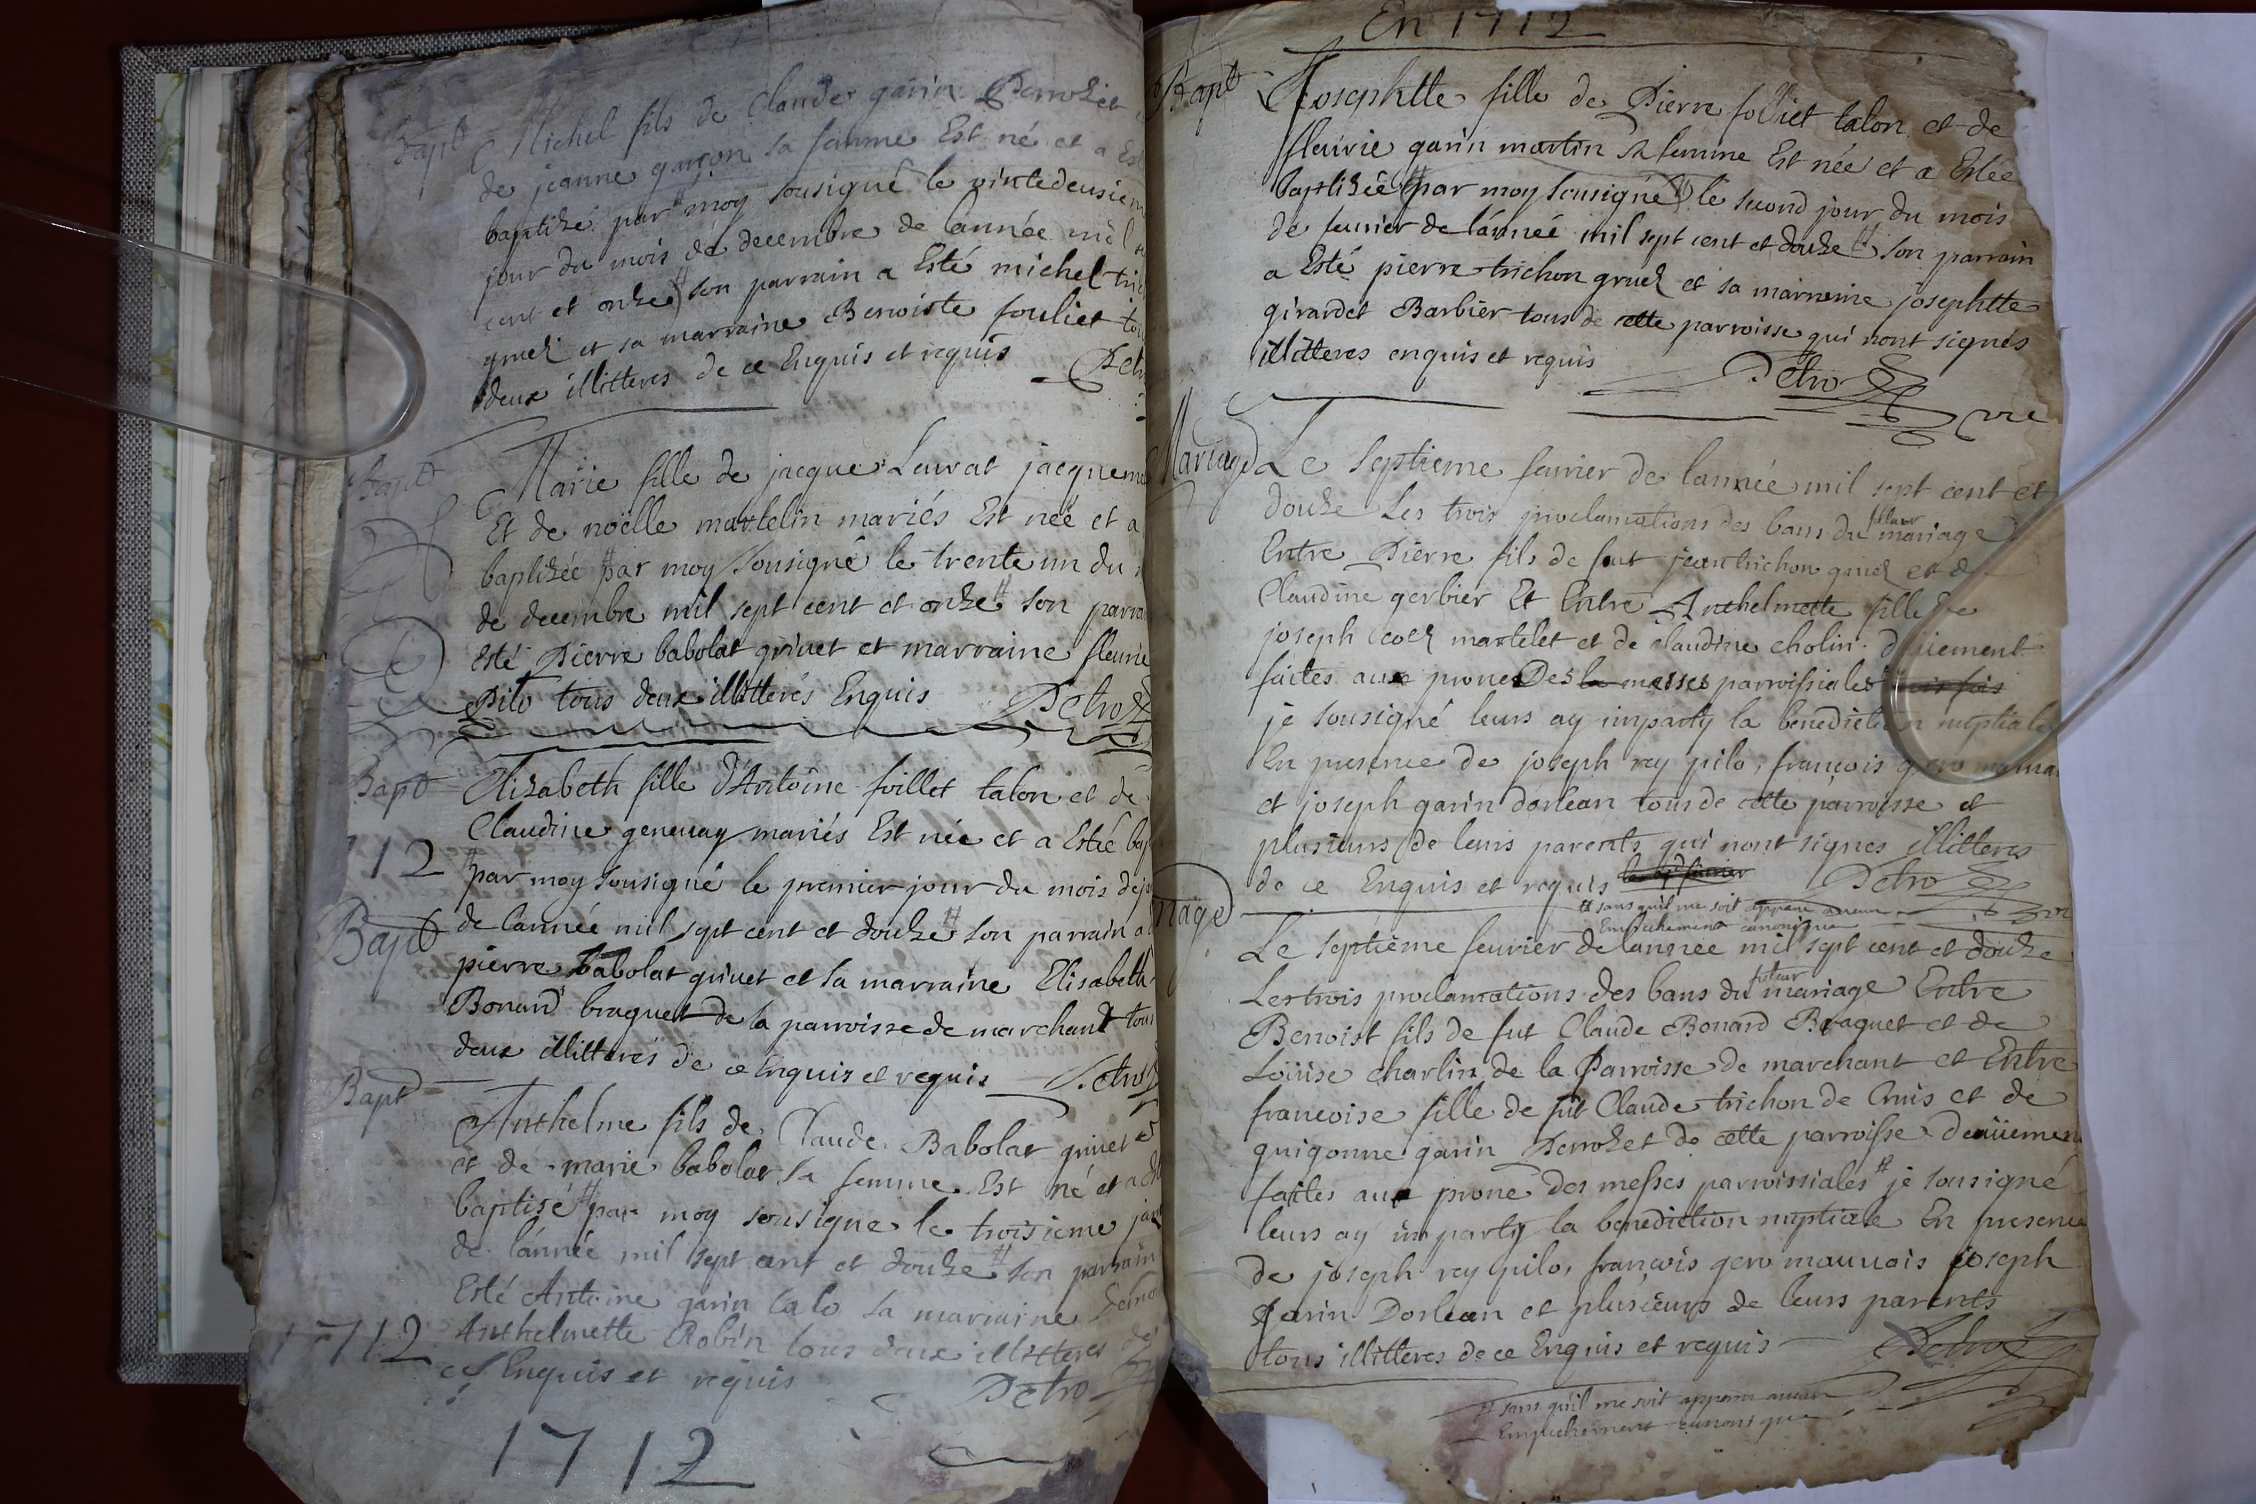 Bapt Michel fils de Claude garin Perrozet
de jeanne garçon sa femme Est né et a Est
baptizé par moy sousigné le vintedeusiem
jour du mois de decembre de lannée mil
cent et onze son parrain a Esté michel tric
gruel et sa marraine Benoiste fouliet
deux illitteres de ce Enquis et requis
Petro
Bapt Marie fille de jacque Leurat jacquem
Et de noëlle martelin mariés Est neé et a
baptizéé par moy sousigné le trente un du
de decembre mil sept cent et onze son parra
Esté Pierre babolat grivet et marraine fleurie
Pilo tous deux illitterés Enquis Petro
Bapt Elizabeth fille d'Antoine foillet talon et de
Claudine genevay mariés Est née et a Esté bap
712
par moy sousigné le premier jour du mois de j
Bapt
de lannée mil sept cent et douze son parrain a
pierre babolat grivet et sa marraine Elisabeth
Bonard braquet de la parroisse de marchant tous
deux illitterés de ce Enquis et requis Petro
Bapt
Anthelme fils de Claude Babolat grivet
et de marie babolat sa femme Est né et a
baptisé par moy sousigne le troisieme jan
de lánnée mil sept cent et douze son parrain
Esté Antoine garin talo sa marraine
1712 Anthelmette Robin tous deux illitteres de
ce Enquis et requis Petro
1712
En 1712
Bapt Josephtte fille de Pierre folliet talon et de
fleurie garin martin sa femme Est néé et a Estéé
baptizéé par moy sousigné le second jour du mois
de feurier de lánnéé mil sept cent et douze son parrain
a Esté pierre trichon gruel et sa marreine josephtte
girardet Barbier tous de cette parroisse qui nont signés
illitteres enquis et requis
Petro
Mariage Le septieme feurier de lannée mil sept cent et
futeur
douze Les trois proclamations des bans du mariage
Entre Pierre fils de feut jean trichon gruel et de
Claudine gerbier Et Entre Anthelmette fille de
joseph martelet et de claudine cholin. düiement
faites aux prones Des la messes parroissiales trois fois
je sousigné leurs ay imparty la benediction nuptiale
En presence de joseph rey pilo, françois gero
et joseph garin dorlean tous de cette parroisse et
plusieurs de leurs parents qui nont signes illitteres
de ce Enquis et requis Petro
sans quil me soit apparu aucun
Empechement canonique
Le septiéme feurier de lannee mil sept cent et douze
futeur
Les trois proclamations des bans du mariage Entre
Benoist fils de fut Claude Bonard Braquet et de
Loüise charlin de la Parroisse de marchant et Entre
francoise fille de fut Claude trichon de Cruis et de
guigonne garin Perrozet de cette parroisse deuüement
faites aux prone des messes parroissiales je sousigné
leurs ay imparty la benediction nuptiale En presence
de joseph rey pilo, françois gero mauuais joseph
garin Dorlean et plusieurs de leurs parents
tous illitteres de ce Enquis et requis Petro
sans quil me soit apparu aucun
Empechement canonique